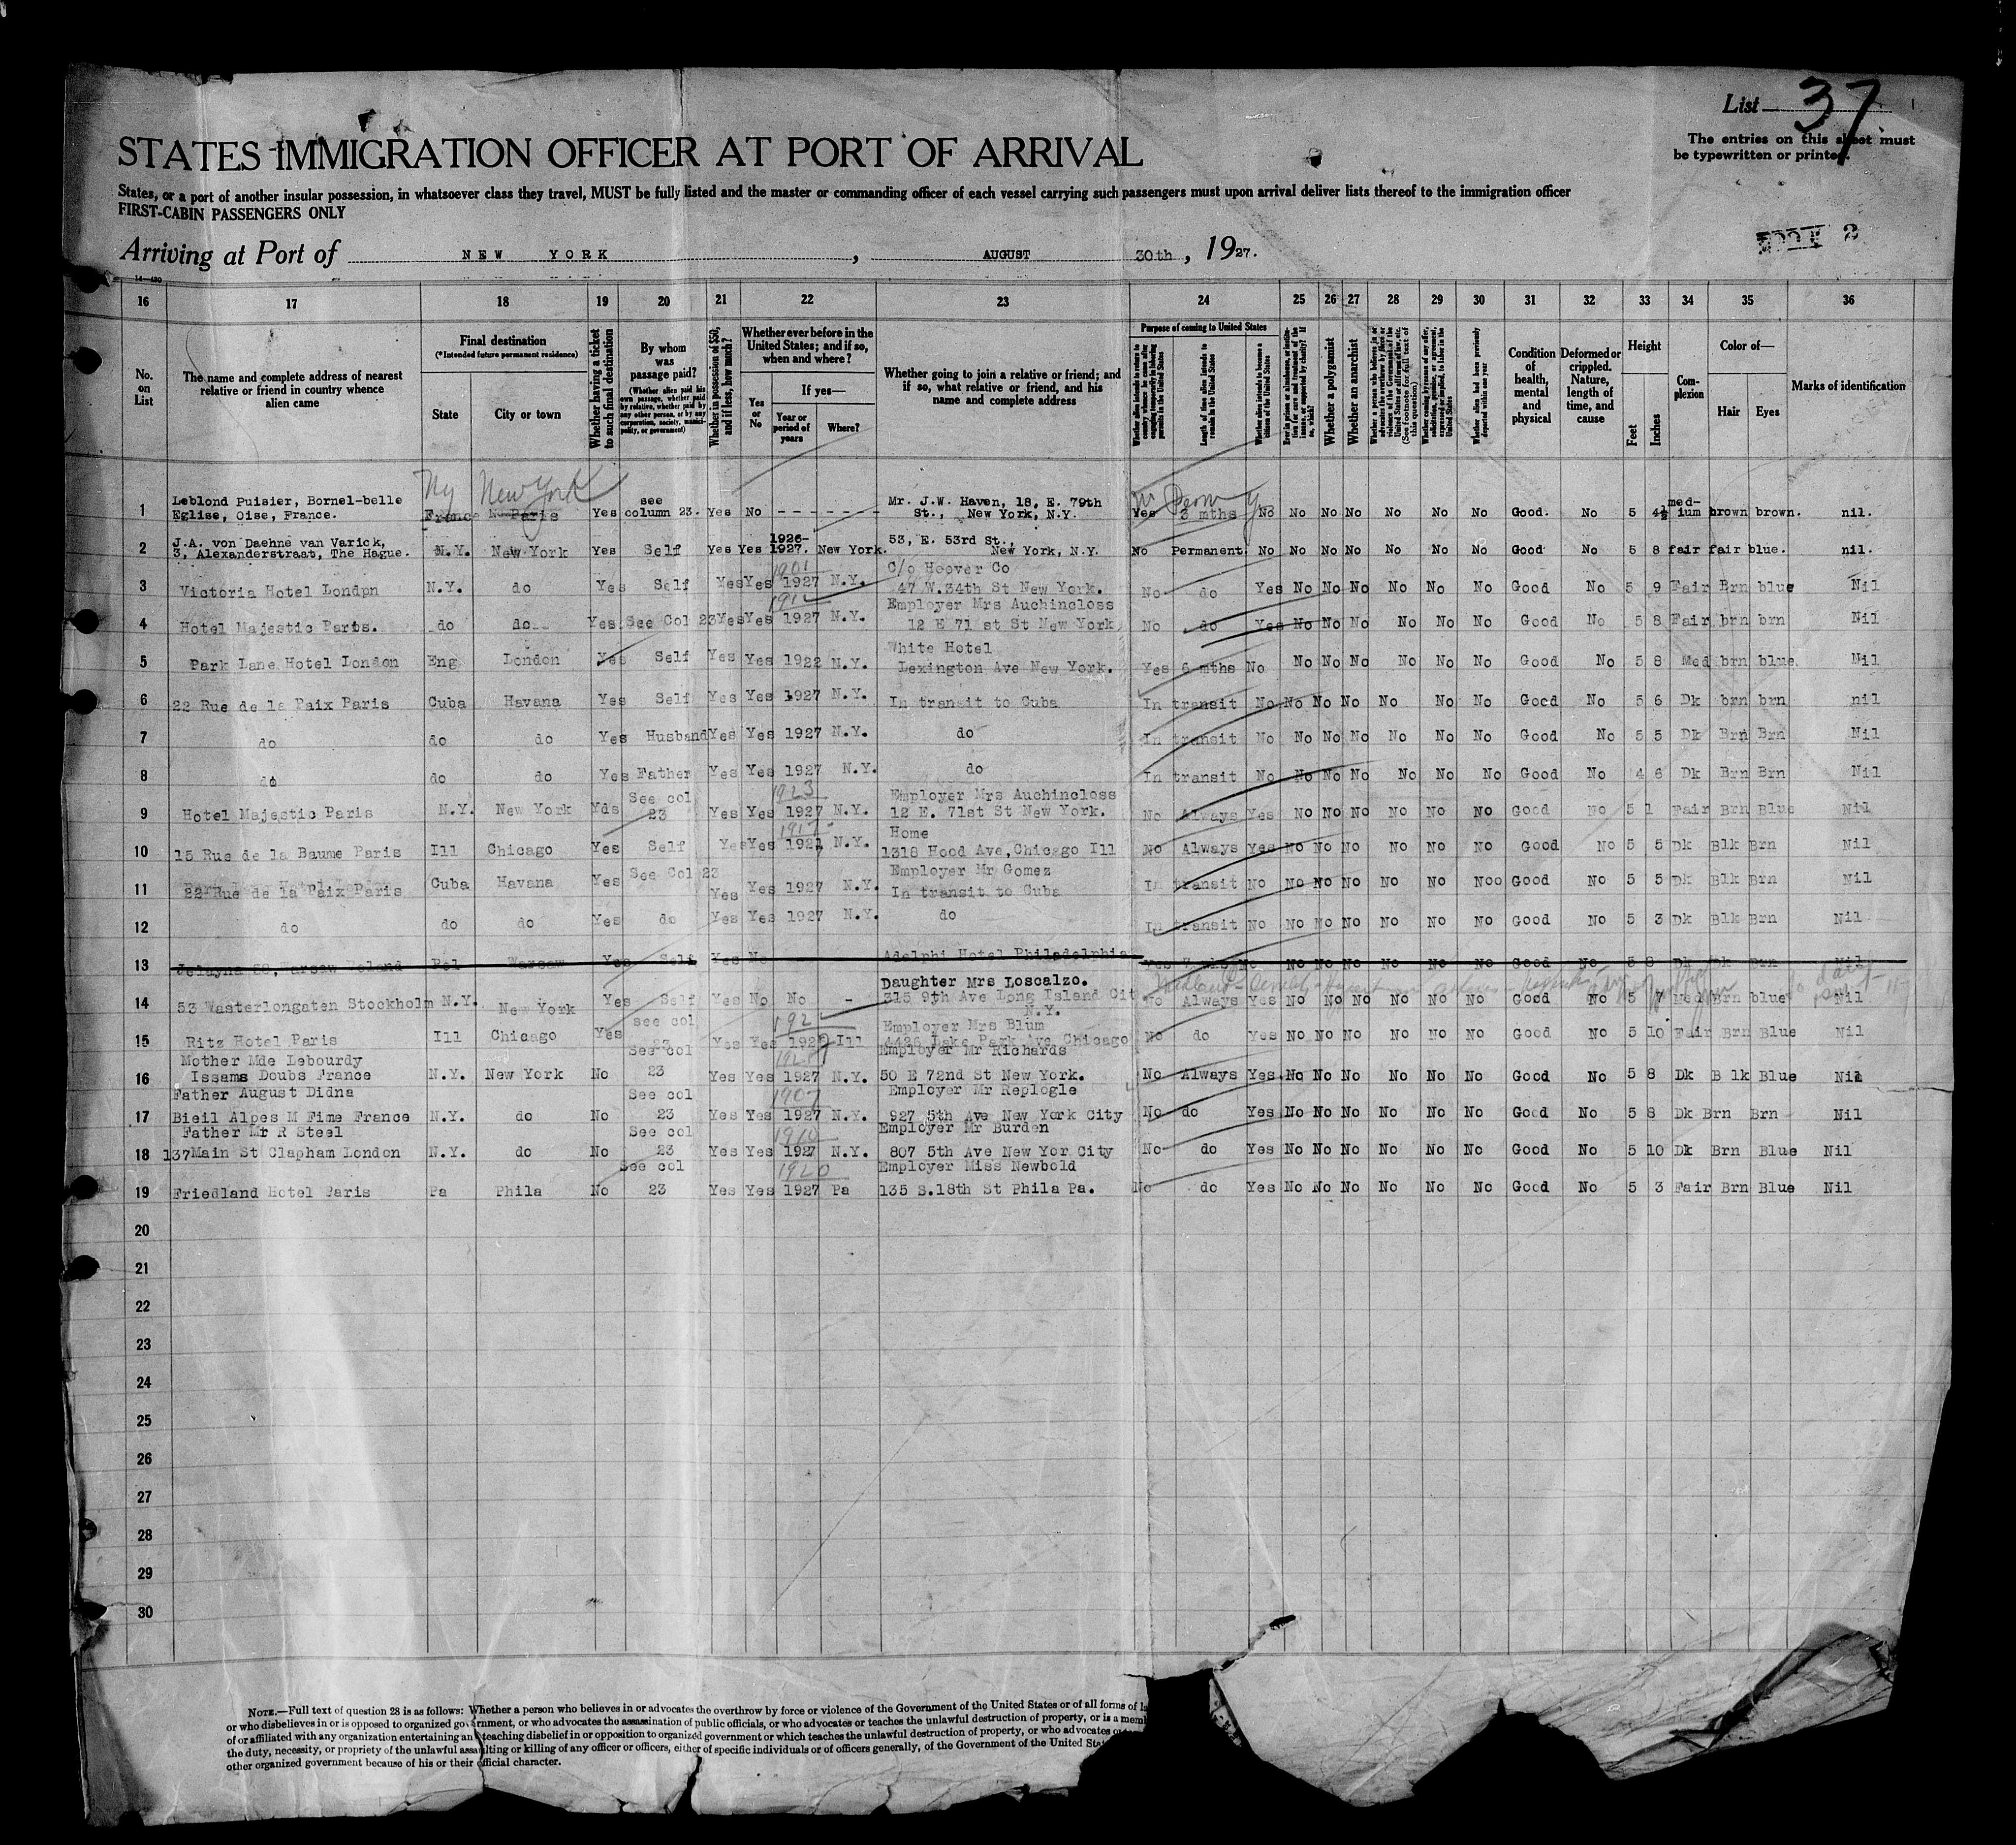 List 37
The entries on this sheet must
be typewritten or printed.
STATES IMMIGRATION OFFICER AT PORT OF ARRIVAL
States, or a port of another insular possession, in whatsoever class they travel, MUST be fully listed and the master or commanding officer of each vessel carrying such passengers must upon arrival deliver lists thereof to the immigration officer
FIRST-CABIN PASSENGERS ONLY
Arriving at Port of NEW YORK, AUGUST 30th, 1927.
2
14-430
16 17 18 19 20 21 22 23 24 25 26 27 28 29 30 31 32 33 34 35 36
No. on List
The name and complete address of nearest relative or friend in country whence alien came
Final destination
(*Intended future permanent residence)
State
City or town
Whether having a ticket to such final destination
By whom was passage paid?
(Whether alien paid his own passage, whether paid by relative, whether paid by any other person, or by any corporation, society, municipality, or government)
Whether in possession of $50, and if less, how much?
Whether ever before in the United States; and if so, when and where?
Yes or No
If yes—
Year or period of years
Where?
Whether going to join a relative or friend; and if so, what relative or friend, and his name and complete address
Purpose of coming to United States
Whether alien intends to return to country whence he came after engaging temporarily in laboring pursuits in the United States
Length of time alien intends to remain in the United States
Whether alien intends to become a citizen of the United States
Ever in prison or almshouse, or institution for care and treatment of the insane, or supported by charity? If so, which?
Whether a polygamist
Whether an anarchist
(See footnote for full text of this question)
Whether alien had been previously deported within one year
Condition of health, mental and physical
Deformed or crippled. Nature, length of time, and cause
Height
Feet
Inches
Complexion
Color of—
Hair
Eyes
Marks of identification
Ny New York
1 Leblond Puisier, Bornel-belle Eglise, Oise, France. France Paris Yes see column 23. Yes No - - - - - - Mr. J.W. Haven, 18, E. 79th St., New York, N.Y. Yes 3 mths No No No No No No No Good. No 5 4½ med-ium brown brown. nil.
2 J.A. von Daehne van Varick, 3, Alexanderstraat, The Hague. N.Y. New York Yes Self Yes Yes 1926-1927. New York. 53, E. 53rd St., New York, N.Y. No Permanent. No No No No No No No Good No 5 8 fair fair blue. nil.
3 Victoria Hotel Londpn N.Y. do Yes Self Yes Yes 1901 1927 N.Y. C/o Hoover Co 47 W.34th St New York. No do Yes No No No No No No Good No 5 9 Fair Brn blue Nil
4 Hotel Majestic Paris. do do Yes See Col 23 Yes Yes 1912 1927 N.Y. Employer Mrs Auchincloss 12 E 71 st St New York No do Yes No No No No No No Good No 5 8 Fair brn brn Nil
5 Park Lane Hotel London Eng London Yes Self Yes Yes 1922 N.Y. White Hotel Lexington Ave New York. Yes 6 mths No No No No No No No Good No 5 8 Med brn blue Nil
6 22 Rue de la Paix Paris Cuba Havana Yes Self Yes Yes 1927 N.Y. In transit to Cuba In transit No No No No No No No Good No 5 6 Dk brn brn nil
7 do do do Yes Husband Yes Yes 1927 N.Y. do In transit No No No No No No No Good No 5 5 Dk Brn Brn Nil
8 do do do Yes Father Yes Yes 1927 N.Y. do In transit No No No No No No No Good No 4 6 Dk Brn Brn Nil
9 Hotel Majestic Paris N.Y. New York Yds See col 23 Yes Yes 1923 1927 N.Y. Employer Mrs Auchincloss 12 E. 71st St New York. No Always Yes No No No No No No Good No 5 1 Fair Brn Blue Nil
10 15 Rue de la Baume Paris Ill Chicago Yes Self Yes Yes 1917 N.Y. Home 1318 Hood Ave, Chicago Ill No Always Yes No No No No No No Good No 5 5 Dk Blk Brn Nil
11 22 Rue de la Paix Paris Cuba Havana Yes See Col 23 Yes Yes 1927 N.Y. Employer Mr Gomez In transit to Cuba In transit No No No No No No Noo Good No 5 5 Dk Blk Brn Nil
12 do do do Yes do Yes Yes 1927 N.Y. do In transit No No No No No No No Good No 5 3 Dk Blk Brn Nil
13 Warsaw Poland Pol Warsaw Yes Self Yes No Adelphi Hotel Philadelphia Yes No No No No No No No Good No 5 8 Dk Dk Brn Nil
14 53 Wasterlongaten Stockholm N.Y. New York Yes Self Yes No No - Daughter Mrs Loscalzo. 315 9th Ave Long Island Cit N.Y. No Always Yes No No No No No No Good No 5 7 Med Brn blue Nil
15 Ritz Hotel Paris Ill Chicago Yes see col 23 Yes Yes Ill Employer Mrs Blum 4426 Lake Park Ave Chicago No do Yes No No No No No No Good No 5 10 Fair Brn Blue Nil
16 Mother Mde Lebourdy Issams Doubs France N.Y. New York No See col 23 Yes Yes 1927 N.Y. Employer Mr Richards 50 E 72nd St New York. No Always Yes No No No No No No Good No 5 8 Dk B lk Blue Nil
17 Father August Didna Bieil Alpes M Fime France N.Y. do No See col 23 Yes Yes 1907 1927 N.Y. Employer Mr Replogle 927 5th Ave New York City No do Yes No No No No No No Good No 5 8 Dk Brn Brn Nil
18 Father Mr R Steel 137 Main St Clapham London N.Y. do No See col 23 Yes Yes 1910 1927 N.Y. Employer Mr Burden 807 5th Ave New Yor City No do Yes No No No No No No Good No 5 10 Dk Brn Blue Nil
19 Friedland Hotel Paris Pa Phila No See col 23 Yes Yes 1920 1927 Pa Employer Miss Newbold 135 S.18th St Phila Pa. No do Yes No No No No No No Good No 5 3 Fair Brn Blue Nil
20
21
22
23
24
25
26
27
28
29
30
NOTE.—Full text of question 28 is as follows: Whether a person who believes in or advocates the overthrow by force or violence of the Government of the United States or of all forms of
or who disbelieves in or is opposed to organized government, or who advocates the assassination of public officials, or who advocates or teaches the unlawful destruction of property, or is a
of or affiliated with any organization entertaining and teaching disbelief in or opposition to organized government or which teaches the unlawful destruction of property, or who advocates
the duty, necessity, or propriety of the unlawful assaulting or killing of any officer or officers, either of specific individuals or of officers generally, of the Government of the United
other organized government because of his or their official character.